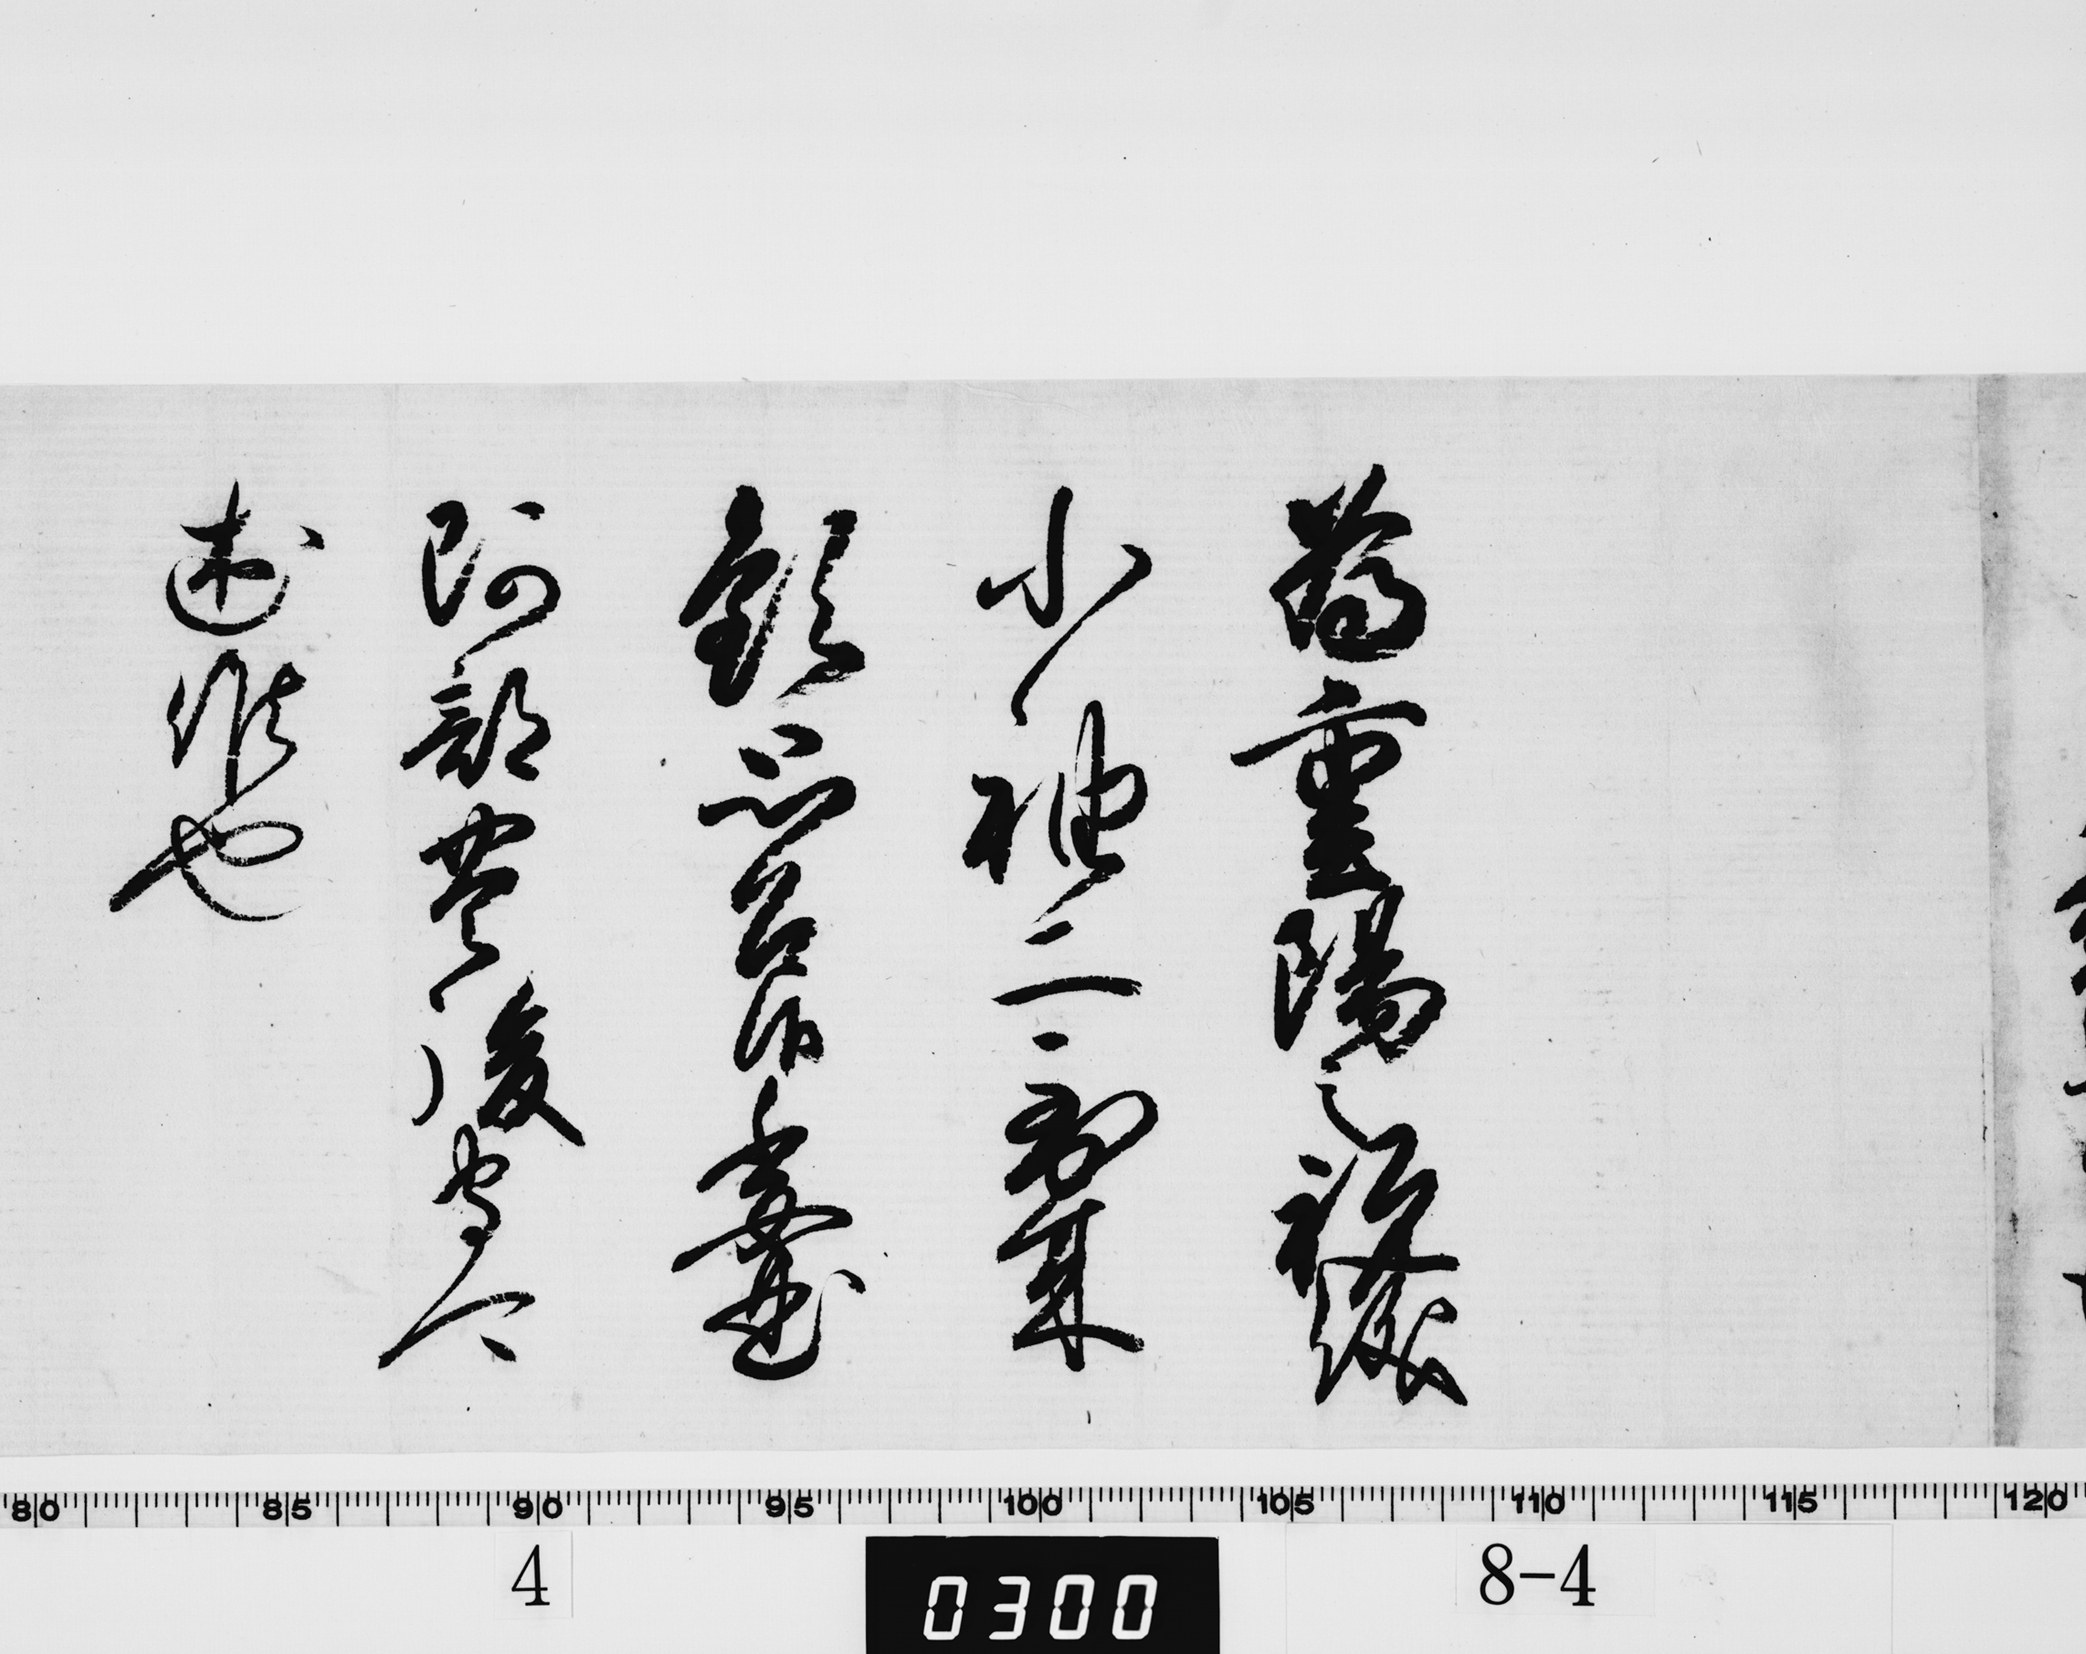 為重陽之祝儀
小袖二到来
歓思召候委
阿部豊後守可
述候也
80 85 90 95 100 105 110 115 120
4
0300
8-4